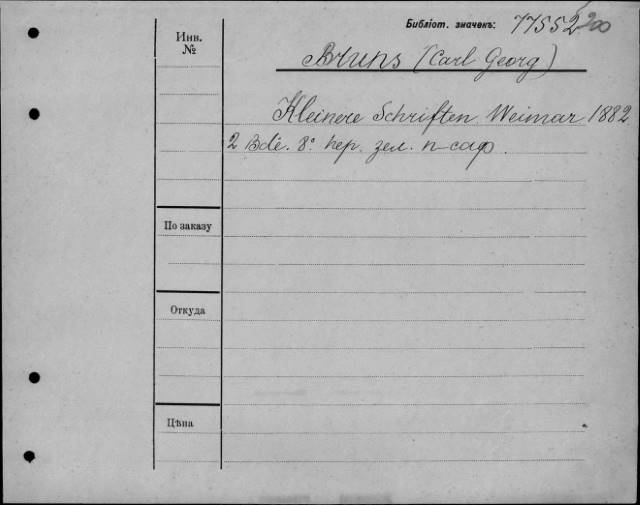 Библіот. значекъ: 77552 200
Инв.
№
Bruns (Carl Georg)
Kleinere Schriften. Weimar 1882
2 Bde. 8° пер. зел. п-саф.
По заказу
Откуда
Цѣна